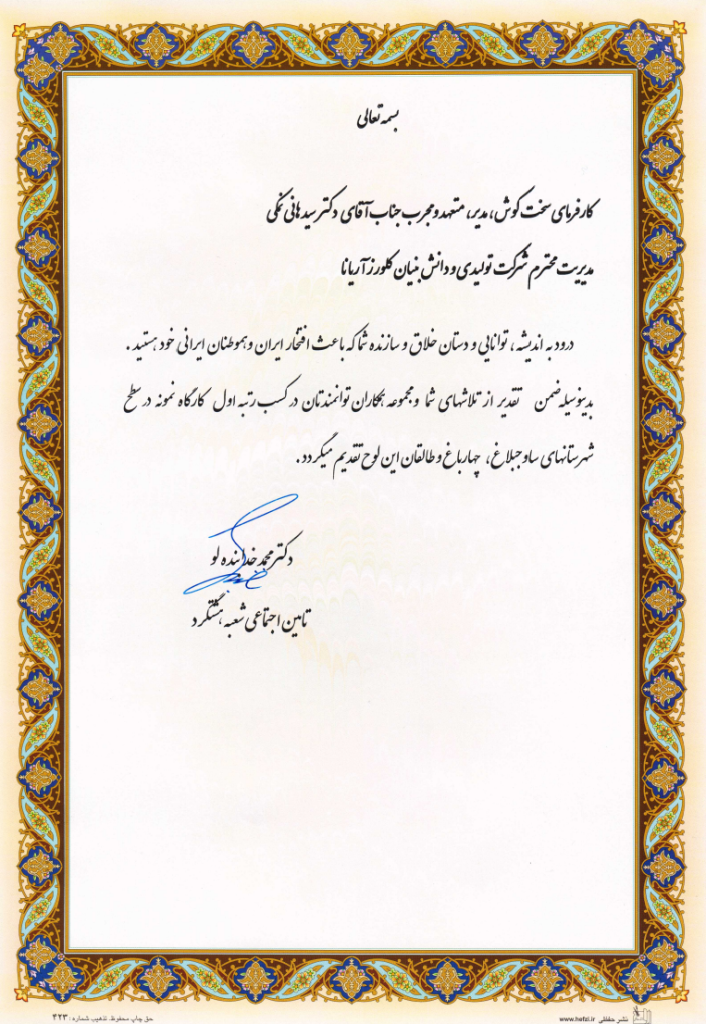 بسمه تعالی
کارفرمای سخت کوش، مدیر، متعهد و مجرب جناب آقای دکتر سید هانی نمکی
مدیریت محترم شرکت تولیدی و دانش بنیان کلورز آریانا
درود به اندیشه، توانایی و دستان خلاق و سازنده شما که باعث افتخار ایران و هموطنان ایرانی خود هستید.
بدینوسیله ضمن تقدیر از تلاشهای شما و مجموعه همکاران توانمندتان در کسب رتبه اول کارگاه نمونه در سطح
شهرستانهای ساوجبلاغ، چهارباغ و طالقان این لوح تقدیم میگردد.
دکتر محمد خدابنده لو
تامین اجتماعی شعبه هشتگرد
نشر حفظی www.hefzi.ir
حق چاپ محفوظ. تذهیب شماره: ۴۲۳